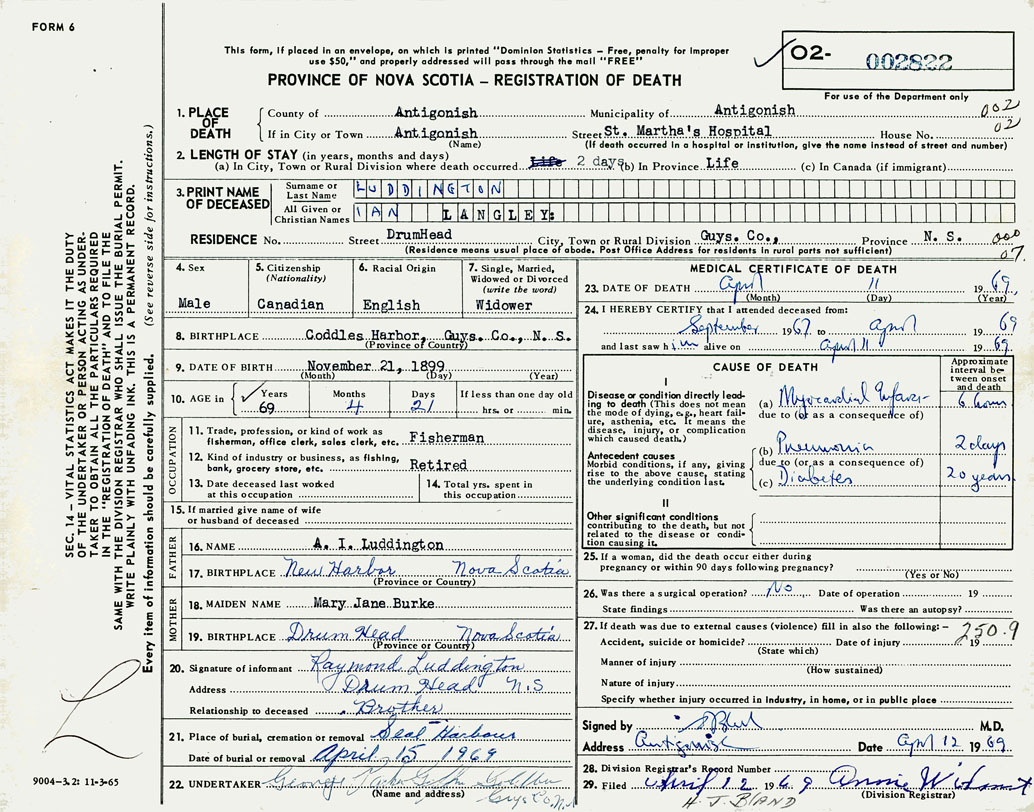 FORM 6
This form, if placed in an envelope, on which is printed "Dominion Statistics – Free, penalty for improper
use $50," and properly addressed will pass through the mail "FREE"
PROVINCE OF NOVA SCOTIA – REGISTRATION OF DEATH
02- 002822
For use of the Department only
1. PLACE OF DEATH
County of Antigonish Municipality of Antigonish 002
If in City or Town Antigonish Street St. Martha's Hospital House No. 02
(Name) (If death occurred in a hospital or institution, give the name instead of street and number)
2. LENGTH OF STAY (in years, months and days)
(a) In City, Town or Rural Division where death occurred Life 2 days (b) In Province Life (c) In Canada (if immigrant)
3. PRINT NAME OF DECEASED
Surname or Last Name LUDDINGTON
All Given or Christian Names IAN LANGLEY:
RESIDENCE No. Street DrumHead City, Town or Rural Division Guys. Co., Province N. S. 000
(Residence means usual place of abode. Post Office Address for residents in rural parts not sufficient) 07.
4. Sex Male
5. Citizenship (Nationality) Canadian
6. Racial Origin English
7. Single, Married, Widowed or Divorced (write the word) Widower
8. BIRTHPLACE Coddles Harbor, Guys. Co., N. S.
(Province of Country)
9. DATE OF BIRTH November 21, 1899
(Month) (Day) (Year)
10. AGE in Years 69 Months 4 Days 21 If less than one day old hrs. or min.
OCCUPATION
11. Trade, profession, or kind of work as fisherman, office clerk, sales clerk, etc. Fisherman
12. Kind of industry or business, as fishing, bank, grocery store, etc. Retired
13. Date deceased last worked at this occupation
14. Total yrs. spent in this occupation
15. If married give name of wife or husband of deceased
FATHER
16. NAME A. I. Luddington
17. BIRTHPLACE New Harbor Nova Scotia
(Province or Country)
MOTHER
18. MAIDEN NAME Mary Jane Burke
19. BIRTHPLACE Drum Head Nova Scotia
(Province or Country)
20. Signature of informant Raymond Luddington
Address Drum Head N.S
Relationship to deceased Brother
21. Place of burial, cremation or removal Seal Harbour
Date of burial or removal April 15 1969
22. UNDERTAKER George
(Name and address) Guys Co. N.S
MEDICAL CERTIFICATE OF DEATH
23. DATE OF DEATH April 11 1969
(Month) (Day) (Year)
24. I HEREBY CERTIFY that I attended deceased from:
September 1967 to April 1969
and last saw him alive on April 11 1969
CAUSE OF DEATH
Approximate interval between onset and death
I
Disease or condition directly leading to death (This does not mean the mode of dying, e.g., heart failure, asthenia, etc. It means the disease, injury, or complication which caused death.)
(a) Myocardial Infarc- 6 hours
due to (or as a consequence of)
Antecedent causes
Morbid conditions, if any, giving rise to the above cause, stating the underlying condition last.
(b) Pneumonia 2 days
due to (or as a consequence of)
(c) Diabetes 20 years
II
Other significant conditions contributing to the death, but not related to the disease or condition causing it.
25. If a woman, did the death occur either during pregnancy or within 90 days following pregnancy?
(Yes or No)
26. Was there a surgical operation? No Date of operation 19
State findings Was there an autopsy?
27. If death was due to external causes (violence) fill in also the following: – 250.9
Accident, suicide or homicide? Date of injury 19
(State which)
Manner of injury
(How sustained)
Nature of injury
Specify whether injury occurred in industry, in home, or in public place
Signed by M.D.
Address Antigonish Date April 12 1969
28. Division Registrar's Record Number
29. Filed April 12 1969 Annie
(Division Registrar)
H. J. BLAND
SEC. 14 – VITAL STATISTICS ACT MAKES IT THE DUTY
OF THE UNDERTAKER OR PERSON ACTING AS UNDER-
TAKER TO OBTAIN ALL THE PARTICULARS REQUIRED
IN THE "REGISTRATION OF DEATH" AND TO FILE THE
SAME WITH THE DIVISION REGISTRAR WHO SHALL ISSUE THE BURIAL PERMIT.
WRITE PLAINLY WITH UNFADING INK. THIS IS A PERMANENT RECORD.
Every item of information should be carefully supplied. (See reverse side for instructions.)
9004-3.2: 11-3-65